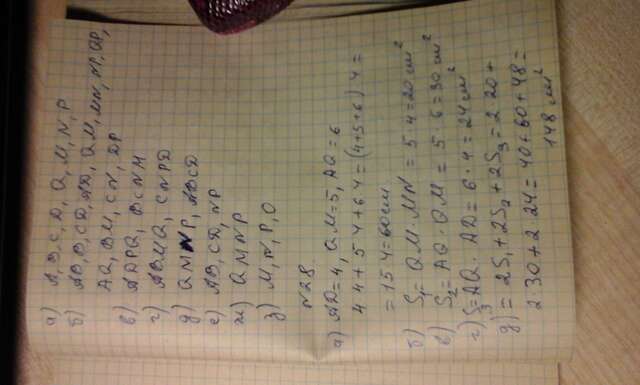 а) A, B, C, D, Q, M, N, P
б) AB, B, CD, AD, QM, MN, NP, QP,
AQ, BM, CN, DP
в) ADPQ, BCNM
г) ABMQ, CNPD
д) QMNP, ABCD
е) AB, CD, NP
ж) QMNP
з) M, N, P, O
N28.
а) AD=4, QM=5, AQ=6
4 4 + 5 4 + 6 4 = (4+5+6) · 4 =
= 15 4 = 60 см
б) S₁ = QM · MN = 5 · 4 = 20 см²
в) S₂ = AQ · QM = 5 · 6 = 30 см²
г) S₃ = AQ · AD = 6 · 4 = 24 см²
д) = 2S₁ + 2S₂ + 2S₃ = 2 · 20 +
2 · 30 + 2 · 24 = 40 + 60 + 48 =
148 см²